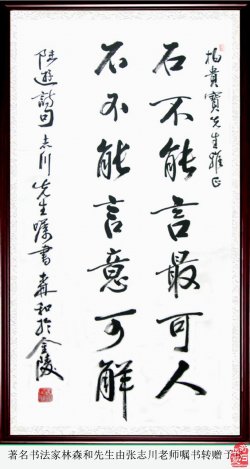 楊貴寶先生雅正
石不能言最可人
石不能言意可解
陸遊詩句 志川先生嘱書 森和於金陵
著名书法家林森和先生由张志川老师嘱书转赠